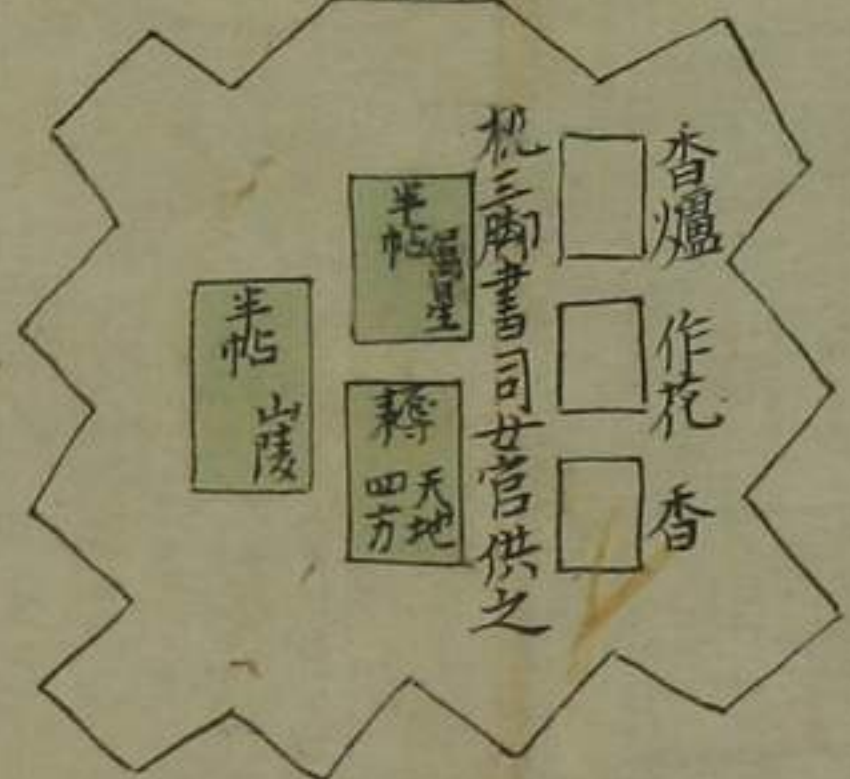 香爐
作花
香
机三脚書司女官供之
半帖
属星
耨
天地
四方
半帖
山陵